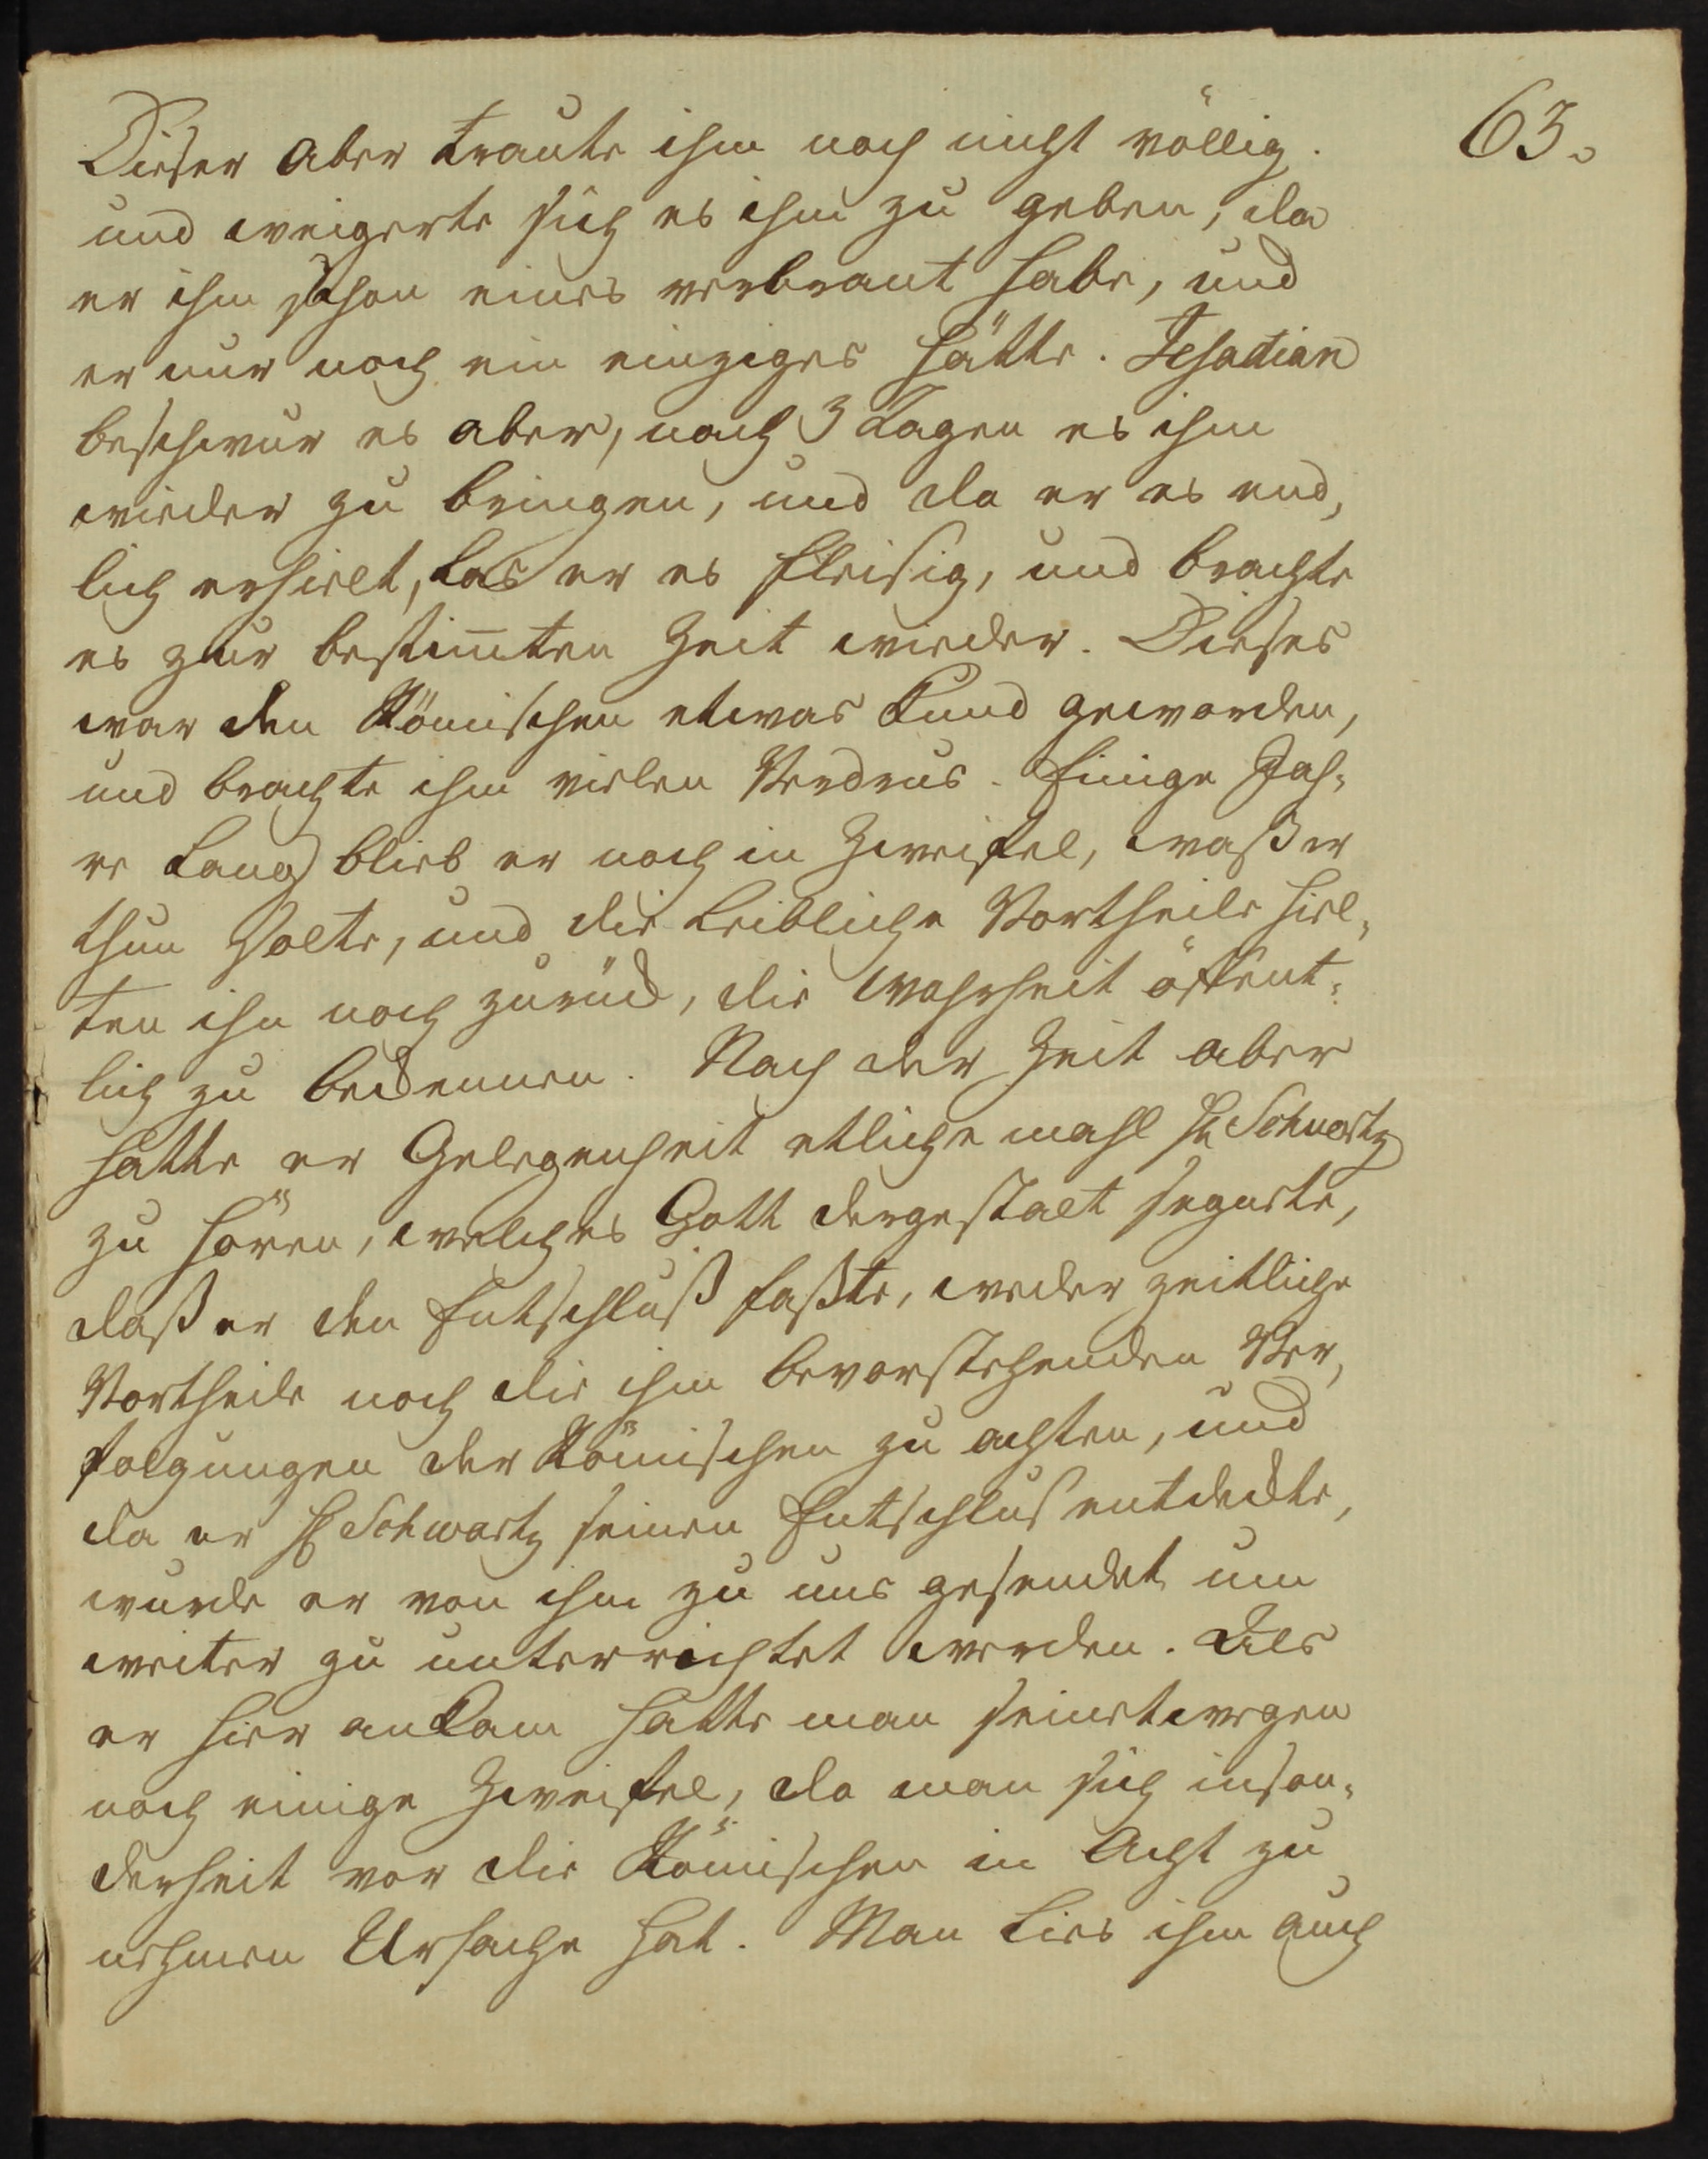 63.
Dieser aber traute ihm noch nicht völlig.
und weigerte sich es ihm zu geben, da
er ihm schon eines verbrant habe, und
er nur noch ein einziges hätte. Jesadian
beschwur es aber, nach 3 Tagen es ihm
wieder zu bringen, und da er es end,
lich erhielt, las er es fleisig, und brachte
es zur bestim̄ten Zeit wieder. Dieses
war den Römischen etwas kund geworden,
und brachte ihm vielen Verdrus. Einige Jah-
re lang blieb er noch in Zweifel, waß er
thun solte, und die leibliche Vortheile hiel,
ten ihn noch zurück, die Wahrheit öffent-
lich zu bekennen. Nach der Zeit aber
hatte er Gelegenheit etliche mahl H Schwartz
zu hören, welches Gott dergestalt segnete,
daß er den Entschluß faßte, weder zeitliche
Vortheile noch die ihm bevorstehenden Ver,
folgungen der Römischen zu achten, und
da er H Schwartz seinen Entschlus entdeckte,
wurde er von ihm zu uns gesendet um
weiter zu unterrichtet werden. Als
er hier ankam hatte man seinetwegen
noch einige Zweifel, da man sich inson-
derheit vor die Römischen in Acht zu
nehmen Ursache hat. Man lies ihm auch